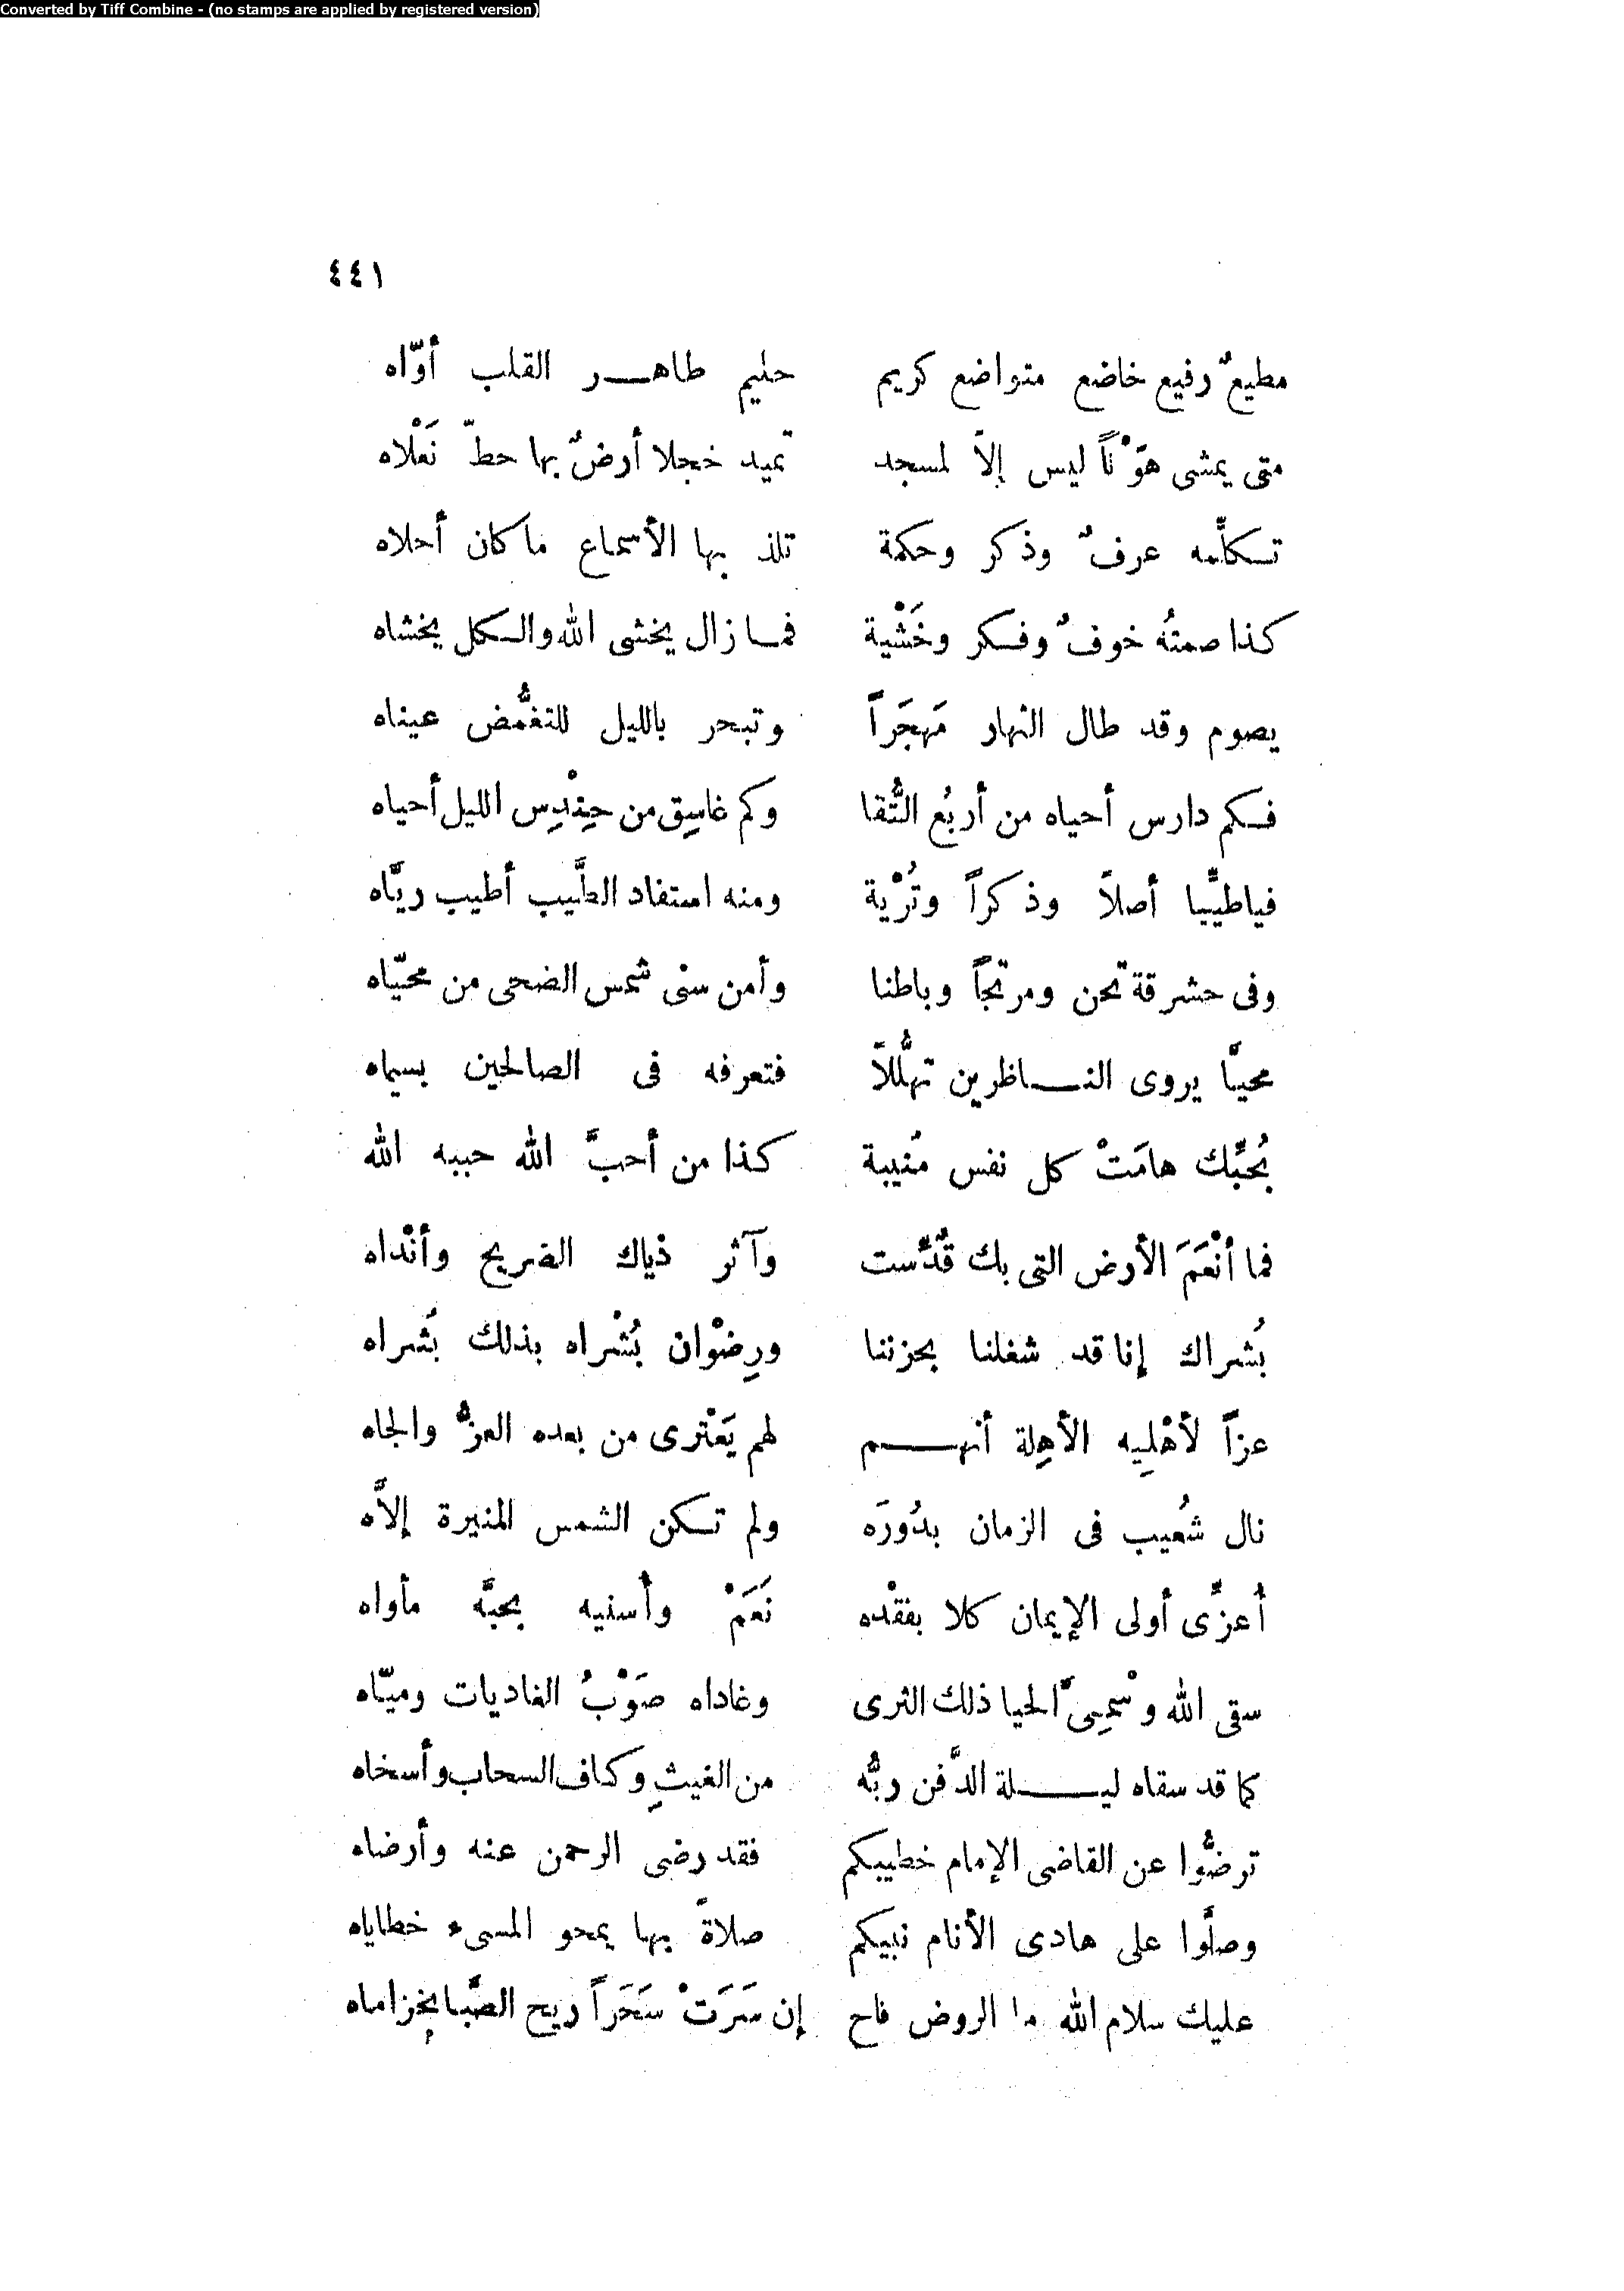 Converted by Tiff Combine - (no stamps are applied by registered version)
٤٤١
مطيعٌ رفيع خاضع متواضع كريم حليم طاهر القلب أوّاه
متى يمشى هوْناً ليس إلاّ لمسجد تميد خجلا أرضٌ بها حطّ نَعْلاه
تكلّمه عرفٌ وذكر وحكمة تلذ بها الأسماع ماكان أحلاه
كذا صمتُه خوفٌ وفكر وخَشْية فما زال يخشى الله والكل يخشاه
يصوم وقد طال النهار مَهجَراً وتبحر بالليل للتغمُّض عيناه
فكم دارس أحياه من أربُع التُّقا وكم غاسِق من حِنْدِس الليل أحياه
فياطيِّبا أصلاً وذكراً وتُرْبة ومنه استفاد الطَّيب أطيب ريَّاه
وفى حشرقة نحن ومرتجاً وباطنا وأمن سنى شمس الضحى من محيّاه
محيًّا يروى الناظرين تهلُّلاً فتعرفه فى الصالحين بسيماه
بُحبِّك هامَتْ كل نفس مُنيبة كذا من أحبَّ الله حببه الله
فما أنْعَمَ الأرض التى بك قُدِّست وآثر ذياك الضريح وأنْداه
بُشراك إنا قد شغلنا بحزننا ورِضْوان بُشْراه بذلك بُشراه
عزاً لأهْلِيه الأهِلة أنهم لهم يَعْترى من بعده العزُّ والجاه
نال شُعيب فى الزمان بدُورَه ولم تكن الشمس المنيرة إلاَّه
أعزِّى أولى الإيمان كلا بفقْده نَعَمْ وأسنيه بحبَّة مأواه
سقى الله وسْمِىّ الحيا ذلك الثرى وغاداه صَوْبُ الغاديات وميّاه
كما قد سقاه ليلة الدَّفن ربُّه من الغيثِ وكاف السحاب وأسخاه
ترضُّوا عن القاضى الإمام خطيبكم فقد رضى الرحمن عنه وأرضاه
وصلُّوا على هادى الأنام نبيكم صلاةً بها يمحو المسىء خطاياه
عليك سلام الله ما الروض فاح إن سَرَتْ سَحَراً ريح الصَّبا بِخزاماه